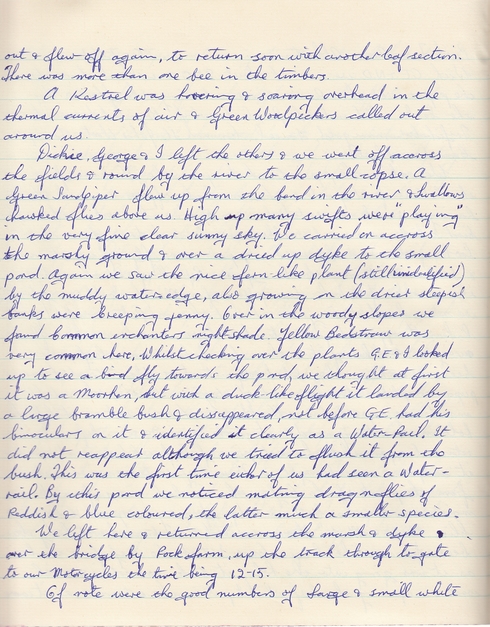 out & flew off again, to return soon with another leaf section.
There was more than one bee in the timbers.
A Kestrel was hovering & soaring overhead in the
thermal currents of air & Green Woodpeckers called out
around us.
Dickie, George & I left the others & we went off accross
the fields & round by the river to the small copse. A
Green Sandpiper flew up from the bend in the river & Swallows
hawked flies above us. High up many swifts were "playing"
in the very fine clear sunny sky. We carried on accross
the marshy ground & over a dried up dyke to the small
pond. Again we saw the nice fern-like plant (still unidentified)
by the muddy waters edge, also growing on the drier steepish
banks were Creeping Jenny. Over in the woody slopes we
found Common enchanters nightshade. Yellow Bedstraw was
very common here. Whilst checking over the plants G.E & I looked
up to see a bird fly towards the pond, we thought at first
it was a Moorhen, but with a duck-like flight it landed by
a large bramble bush & disappeared, not before G.E. had his
binoculars on it & identified it clearly as a Water-Rail. It
did not reappear although we tried to flush it from the
bush. This was the first time either of us had seen a Water-
rail. By this pond we noticed mating dragonflies of
Reddish & blue coloured, the latter much a smaller species.
We left here & returned accross the marsh & dyke
over the bridge by Rock farm, up the track through to gate
to our Motorcycles the time being 12-15.
Of note were the good numbers of Large & small white